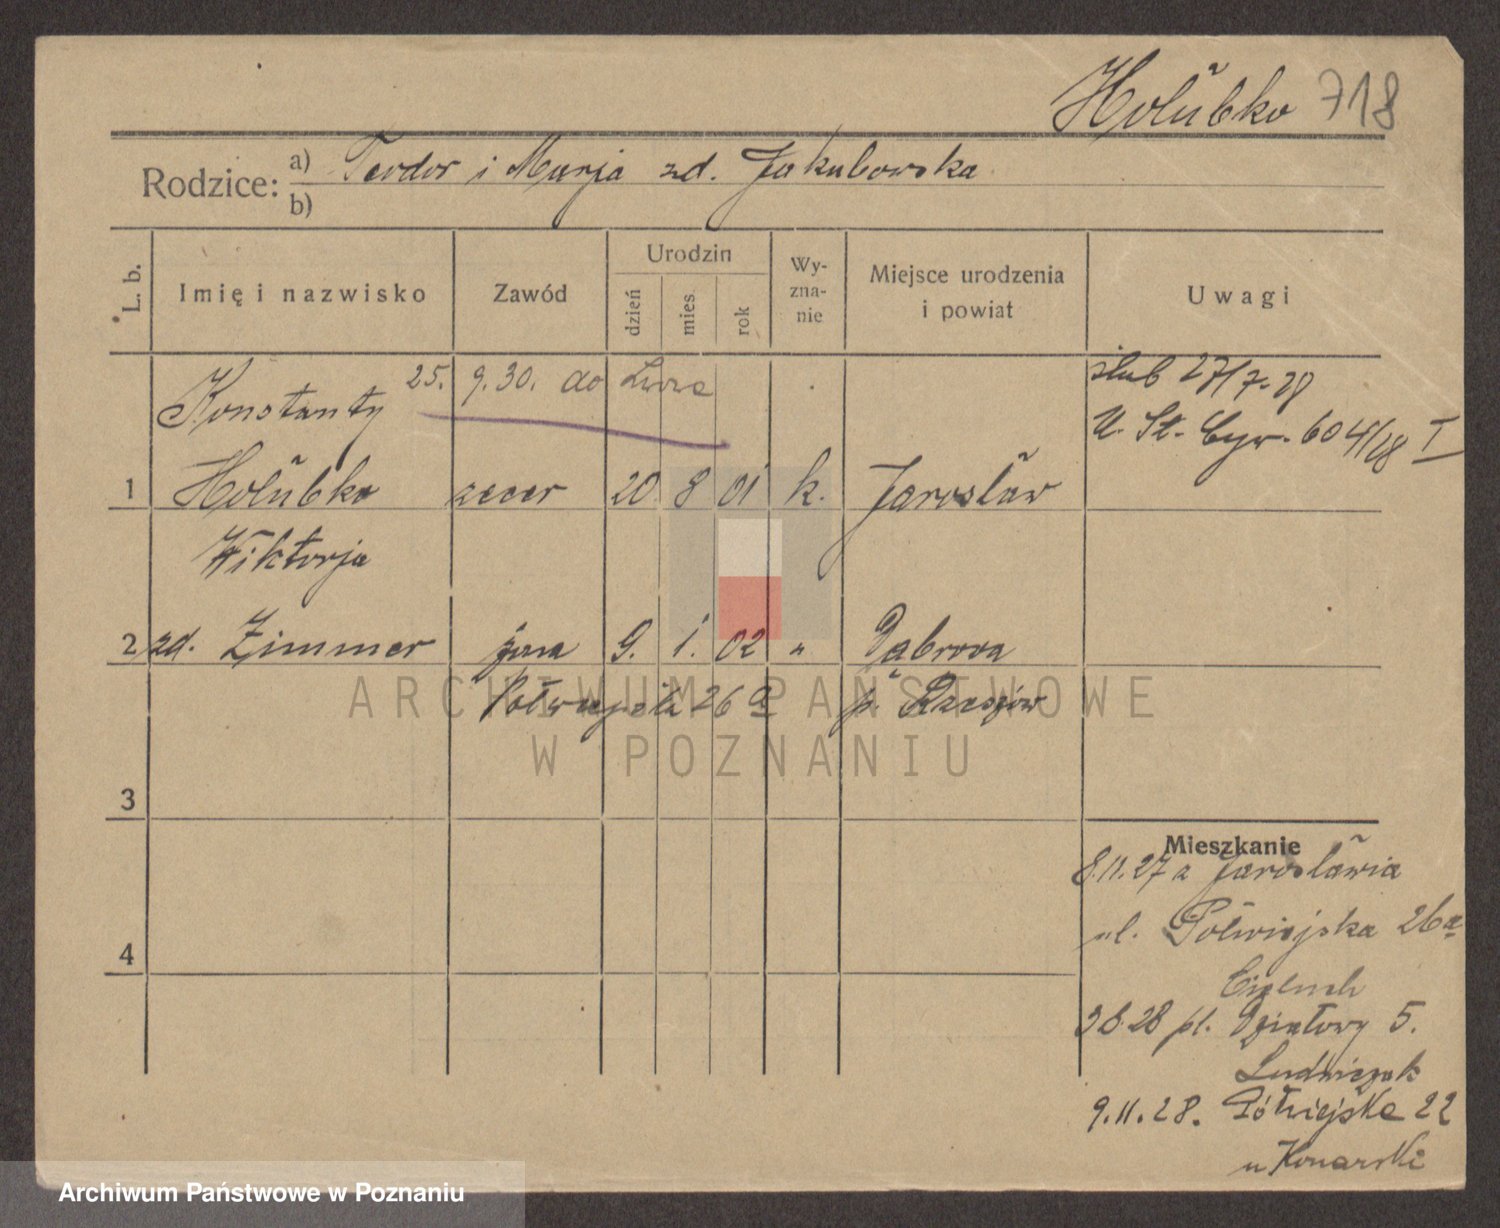 Holŭbko 718
Rodzice: a) Teodor i Marja zd. Jakubowska
b)
L. b. Imię i nazwisko Zawód Urodzin dzień mies. rok Wyznanie Miejsce urodzenia i powiat Uwagi
25. 9.30. do
Konstanty
ślub 27/7.28
U. St. Cyw. 604/28 I
1 Holŭbko zecer 20 8 01 k. Jarosław
Wiktorja
2 zd. Zimmer żona 9. 1. 02 " Dąbrowa
Półwiejska 26a p. Rzeszów
3
Mieszkanie
8.11.27 z Jarosławia
ul. Półwiejska 26a
4
28 pl. Działowy 5.
Ludwiczak
9.11.28. Półwiejska 22
u Konarski
ARCHIWUM PAŃSTWOWE
W POZNANIU
Archiwum Państwowe w Poznaniu